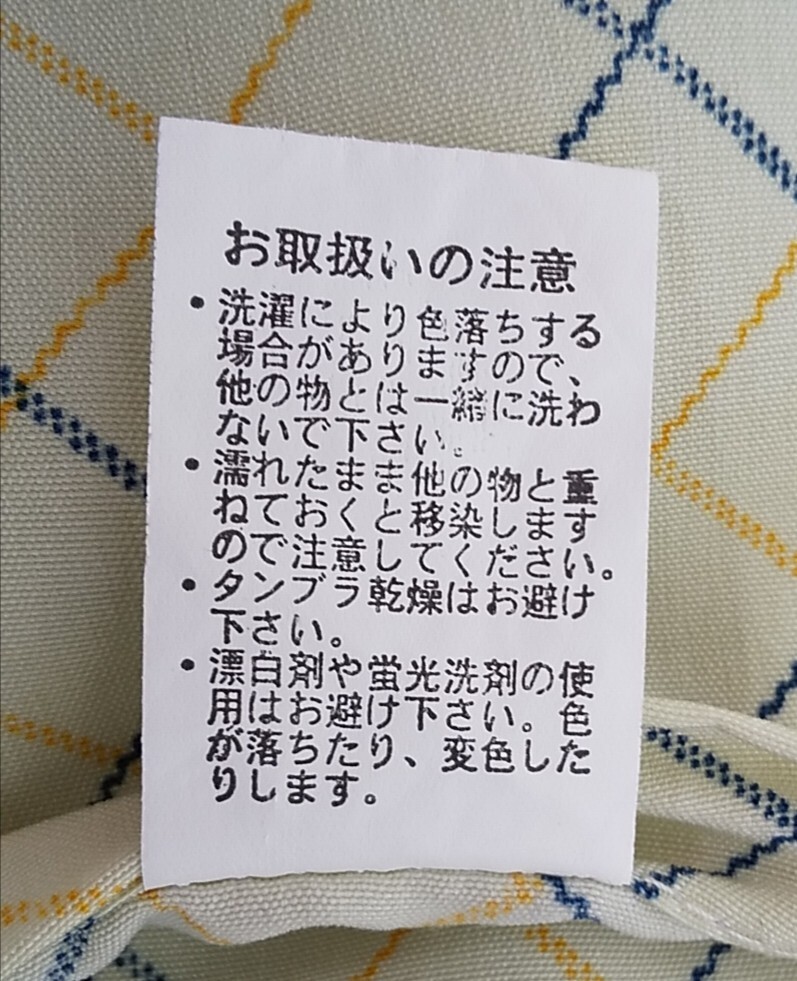 お取扱いの注意
・洗濯により色落ちする
場合がありますので、
他の物とは一緒に洗わ
ないで下さい。
・濡れたまま他の物と重
ねておくと移染します
ので注意してください。
・タンブラ乾燥はお避け
下さい。
・漂白剤や蛍光洗剤の使
用はお避け下さい。色
が落ちたり、変色した
りします。